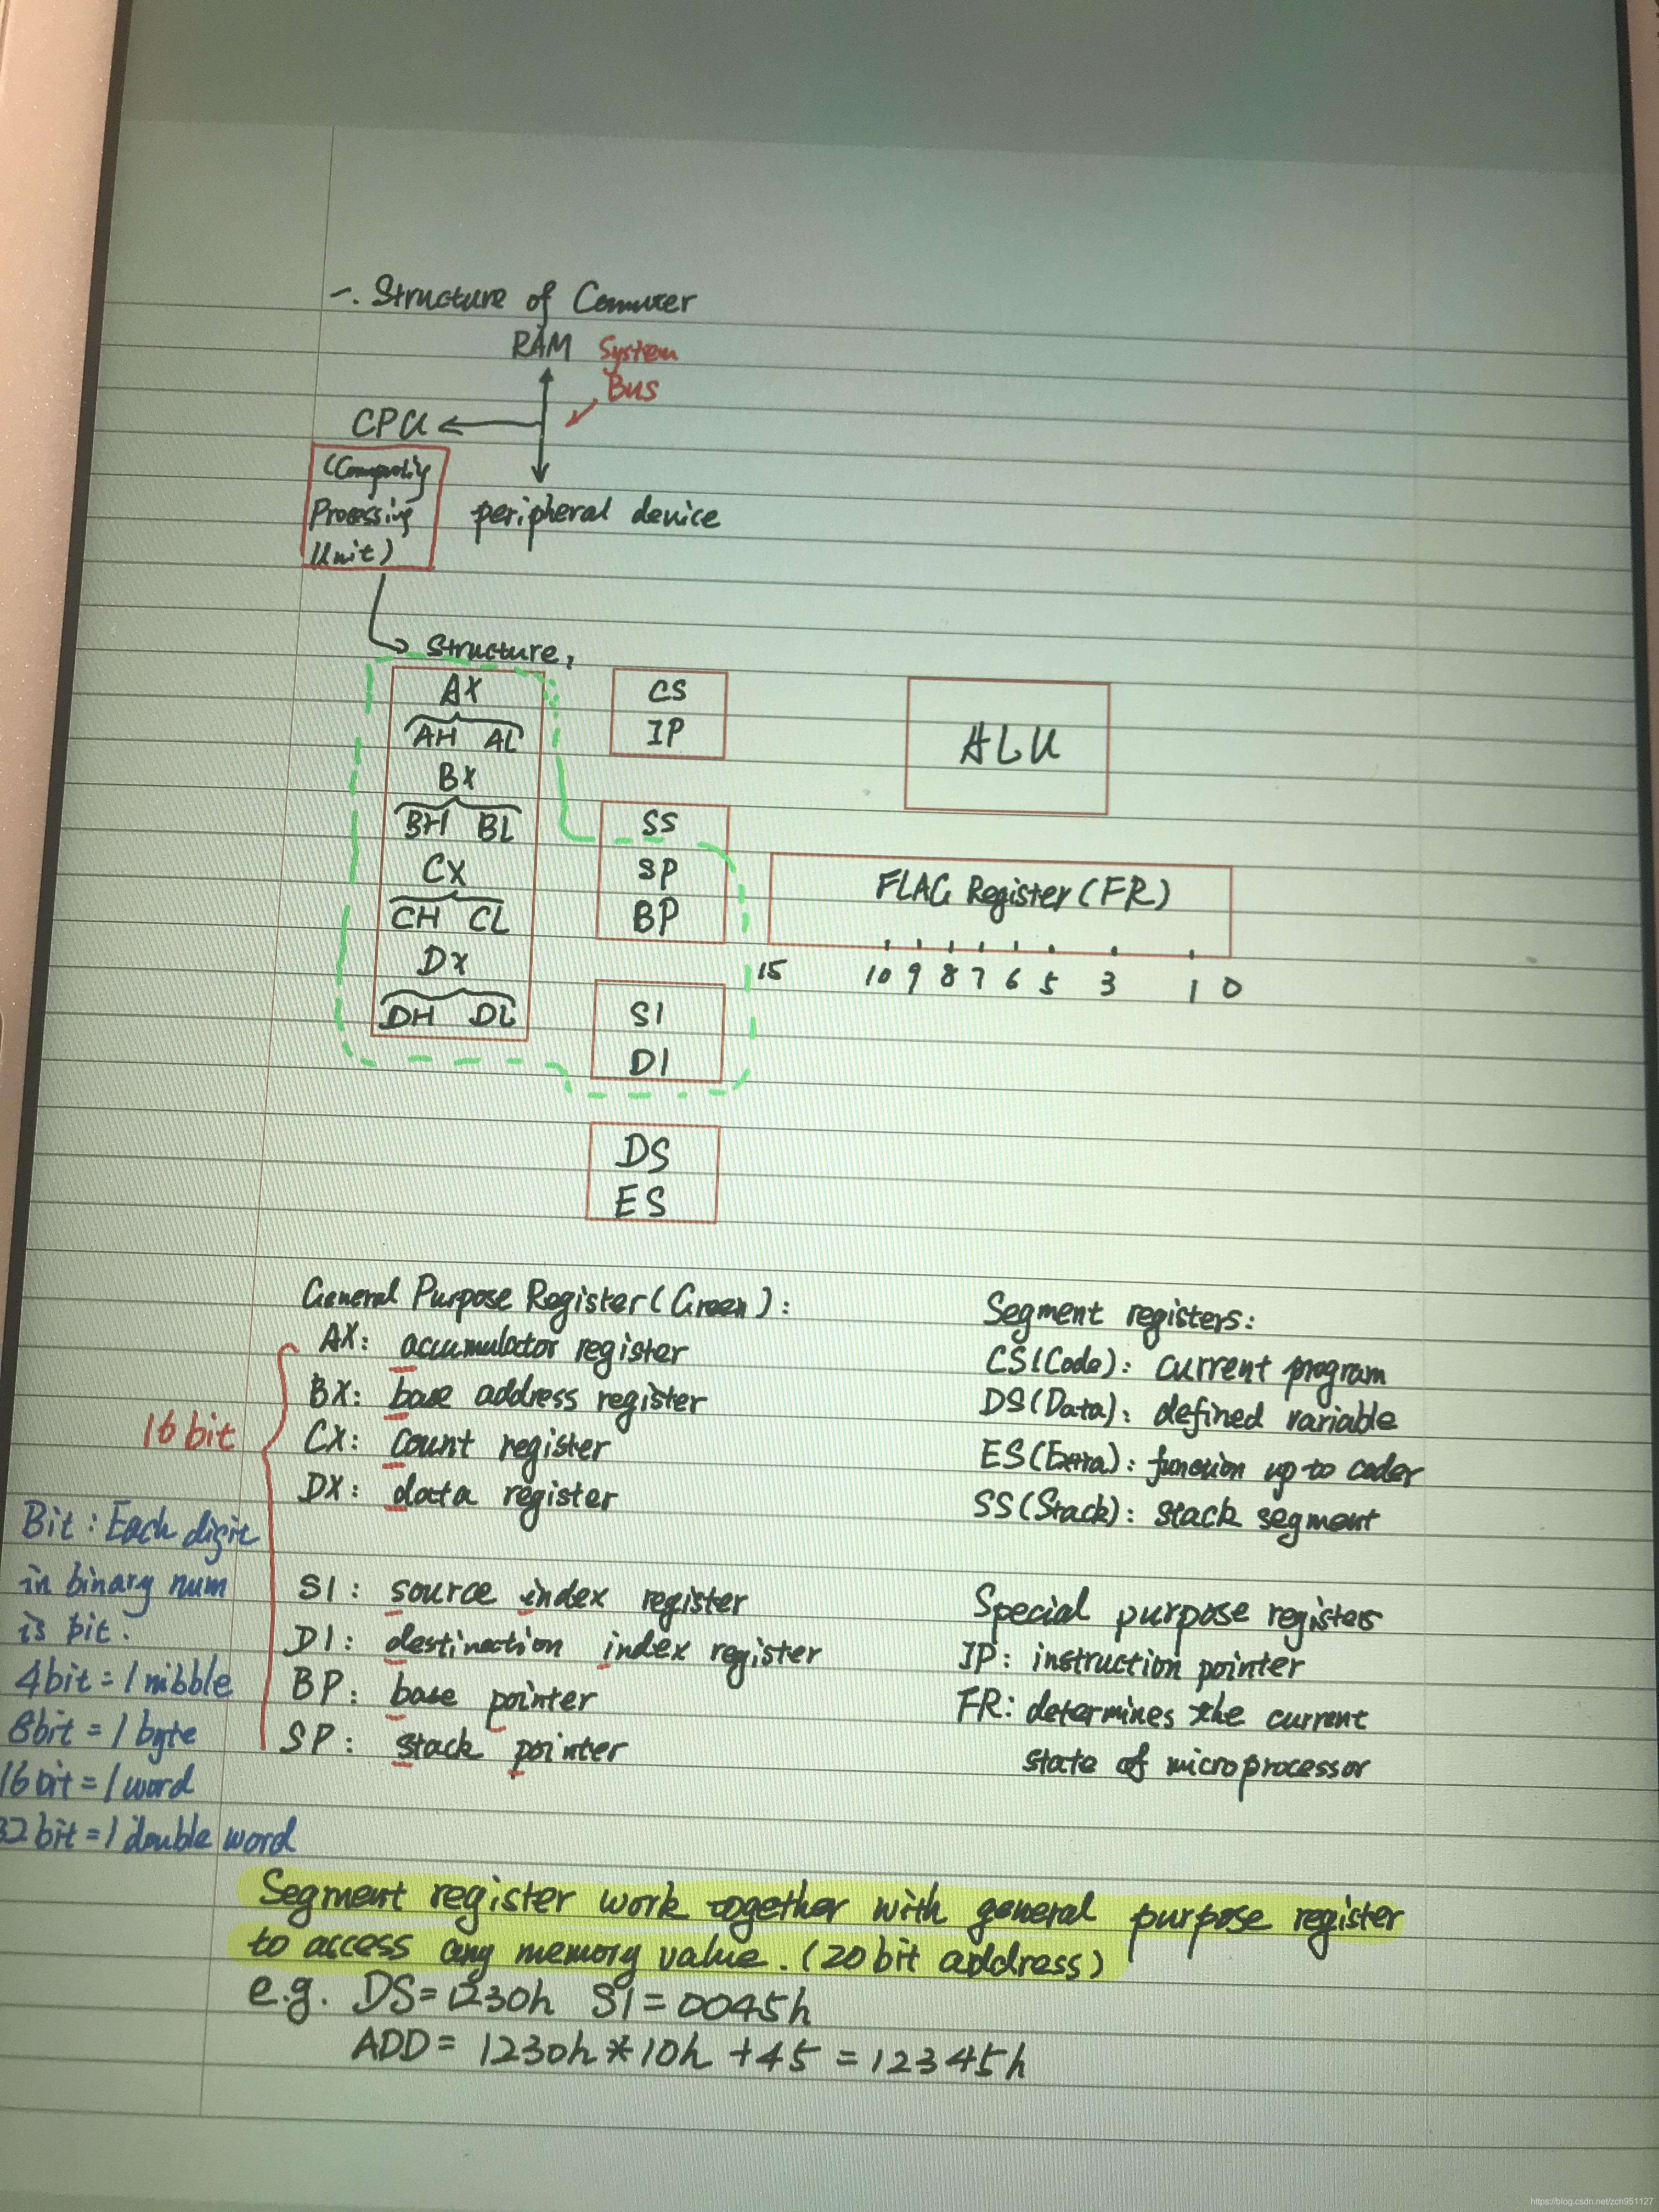 一. Structure of Commuter
RAM System
Bus
CPU
Processing
Unit)
peripheral device
Structure,
AX
AH AL
BX
BH BL
CX
CH CL
DX
DH DL
CS
IP
SS
SP
BP
SI
DI
DS
ES
ALU
FLAG Register (FR)
15 10 9 8 7 6 5 3 1 0
General Purpose Register (Green):
AX: accumulator register
BX: base address register
CX: count register
DX: data register
SI: source index register
DI: destination index register
BP: base pointer
SP: stack pointer
16 bit
Bit: Each digit
in binary num
is bit.
4bit = 1 nibble
8bit = 1 byte
16 bit = 1 word
32 bit = 1 double word
Segment registers:
CS(Code): current program
DS(Data): defined variable
ES(Extra): function up to coder
SS(Stack): stack segment
Special purpose registers
IP: instruction pointer
FR: determines the current
state of microprocessor
Segment register work together with general purpose register
to access any memory value. (20 bit address)
e.g. DS=1230h SI=0045h
ADD= 1230h*10h +45 =12345h
https://blog.csdn.net/zch951127